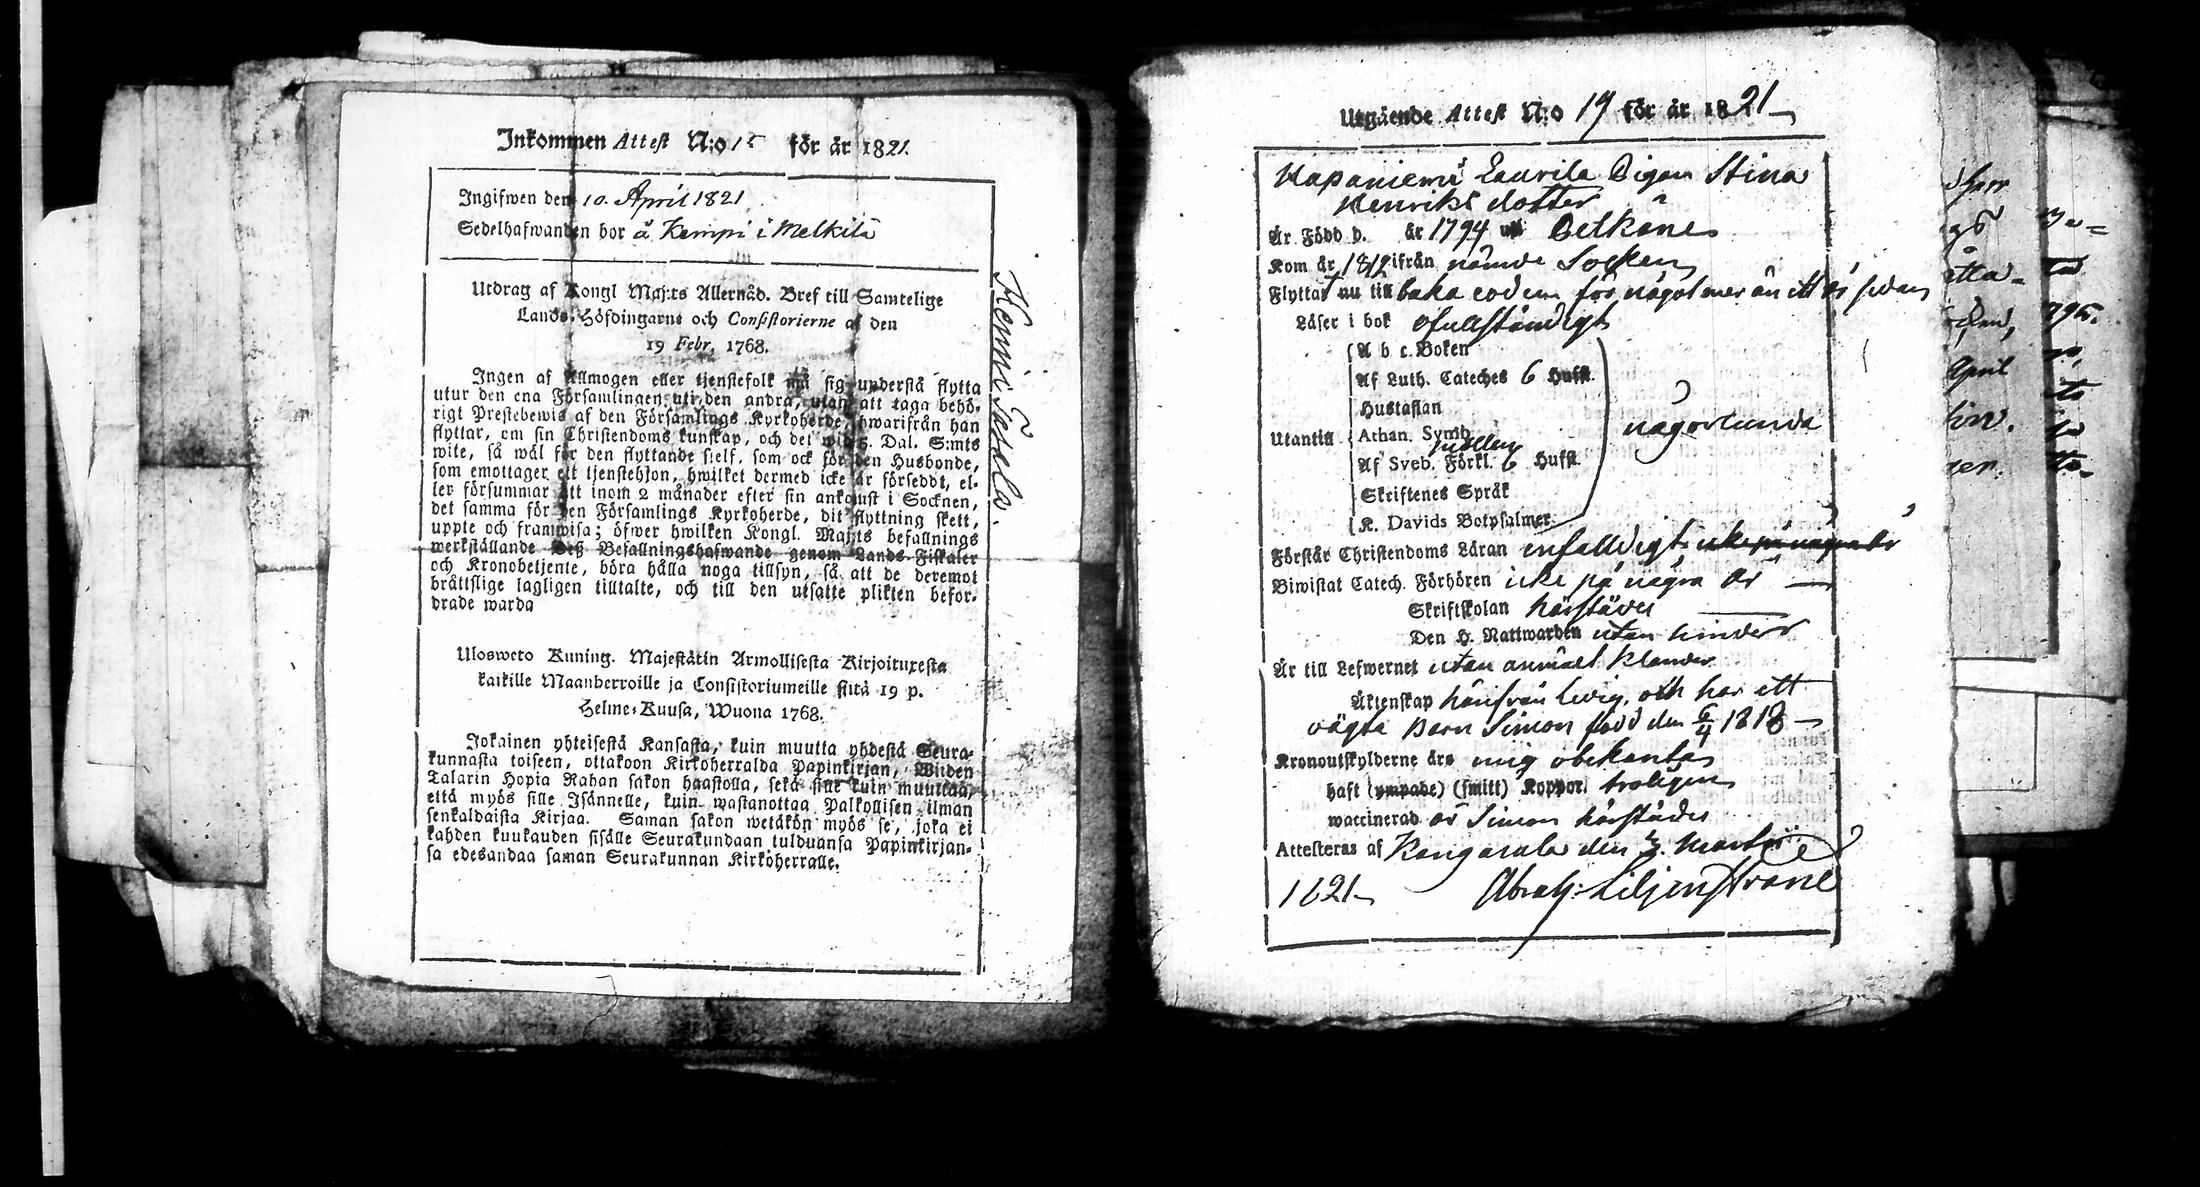 Inkommen Attest N:o 15 för år 1821.
Ingifwen den 10. April 1821
Sedelhafwanden bor å Kempi i Melkilä
Utdrag af Kongl Maj:ts Allernåd. Bref till Samtelige
Lands-Höfdingarne och Consistorierne af den
19 Febr. 1768.
Ingen af Allmogen eller tjenstefolk må sig understå flytta
utur den ena Församlingen uti den andra, utan att taga behö-
rigt Prestebewis af den Församlings Kyrkoherde, hwarifrån han
flyttar, om sin Christendoms kunskap, och det wid 3. Dal. S:mts
wite, så wäl för den flyttande sielf, som ock för den Husbonde,
som emottager ett tjenstehjon, hwilket dermed icke är försedt, el-
ler försummar att inom 2 månader efter sin ankomst i Socknen,
det samma för den Församlings Kyrkoherde, dit flyttning skett,
uppte och framwisa; öfwer hwilken Kongl. Maj:ts befallnings
werkställande Deß Befallningshafwande genom Lands-Fiskaler
och Kronobetjente, böra hålla noga tillsyn, så att de deremot
brättslige lagligen tilltalte, och till den utsatte plikten befor-
drade warda
Ulosweto Kuning. Majestätin Armollisesta Kirjoituxesta
kaikille Maanherroille ja Consistoriumeille siitä 19 p.
Helme-Kuusa, Wuona 1768.
Jokainen yhteisestä Kansasta, kuin muutta yhdestä Seura-
kunnasta toiseen, ottakoon Kirkoherralda Papinkirjan, Wiiden
Talarin Hopia Rahan sakon haastolla, sekä sille kuin muuttaa,
että myös sille Isännelle, kuin wastanottaa Palkollisen ilman
senkaldaista Kirjaa. Saman sakon wetäkön myös se, joka ei
kahden kuukauden sisälle Seurakundaan tulduansa Papinkirjan-
sa edesandaa saman Seurakunnan Kirkoherralle.
Utgående Attest N:o 19 för år 1821
Hapaniemi Laurila Pigan Stina
Henriks dotter
Är Född d. år 1794 uti Pelkäne
Kom år 1812 ifrån nämde Socken
Flyttat nu till baka eodem för något mer än ett år sedan
Läser i bok ofullständigt
A b c. Boken
Af Luth. Cateches 6 Hufst.
Hustaflan
Utantill Athan. Symb. någorlunda
Af Sveb. Förkl. 6 Hufst.
Skriftenes Språk
K. Davids Botpsalmer
Förstår Christendoms Läran enfaldigt icke på några år
Biwistat Catech. Förhören icke på några år
Skriftskolan härstädes
Den H. Nattwarden utan hinder
Är till Lefwernet utan anmält klander
Äktenskap härifrån ledig, och har ett
oägta Barn Simon född den 6/4 1818
Kronoutskylderne äro mig obekanta
haft (ympade) (smitt) Koppor. troligen
waccinerad är Simon härstädes
Attesteras af Kangasala den Martii
1821 Abrah: Liljenstrand